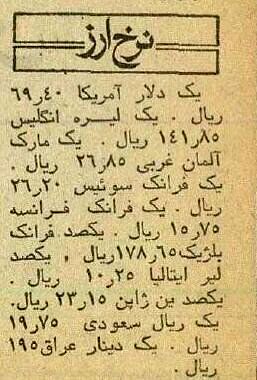 نرخ ارز
یک دلار آمریکا ۶۹ر۴۰
ریال . یک لیره انگلیس
۱۴۱ر۸۵ ریال . یک مارک
آلمان غربی ۲۶ر۸۵ ریال .
یک فرانک سوئیس ۲۶ر۲۰
ریال . یک فرانک فرانسه
۱۵ر۷۵ ریال . یکصد فرانک
بلژیک ۱۷۸ر۶۵ ریال , یکصد
لیر ایتالیا ۱۰ر۲۵ ریال .
یکصد ین ژاپن ۲۳ر۱۵ ریال.
یک ریال سعودی ۱۹ر۷۵
ریال . یک دینار عراق ۱۹۵
ریال .